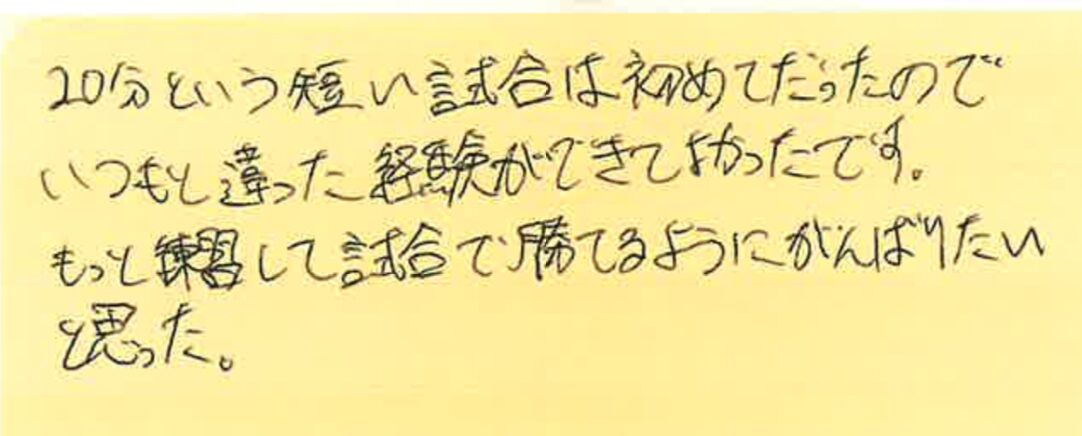 20分という短い試合は初めてだったので
いつもと違った経験ができてよかったです。
もっと練習して試合で勝てるようにがんばりたい
と思った。